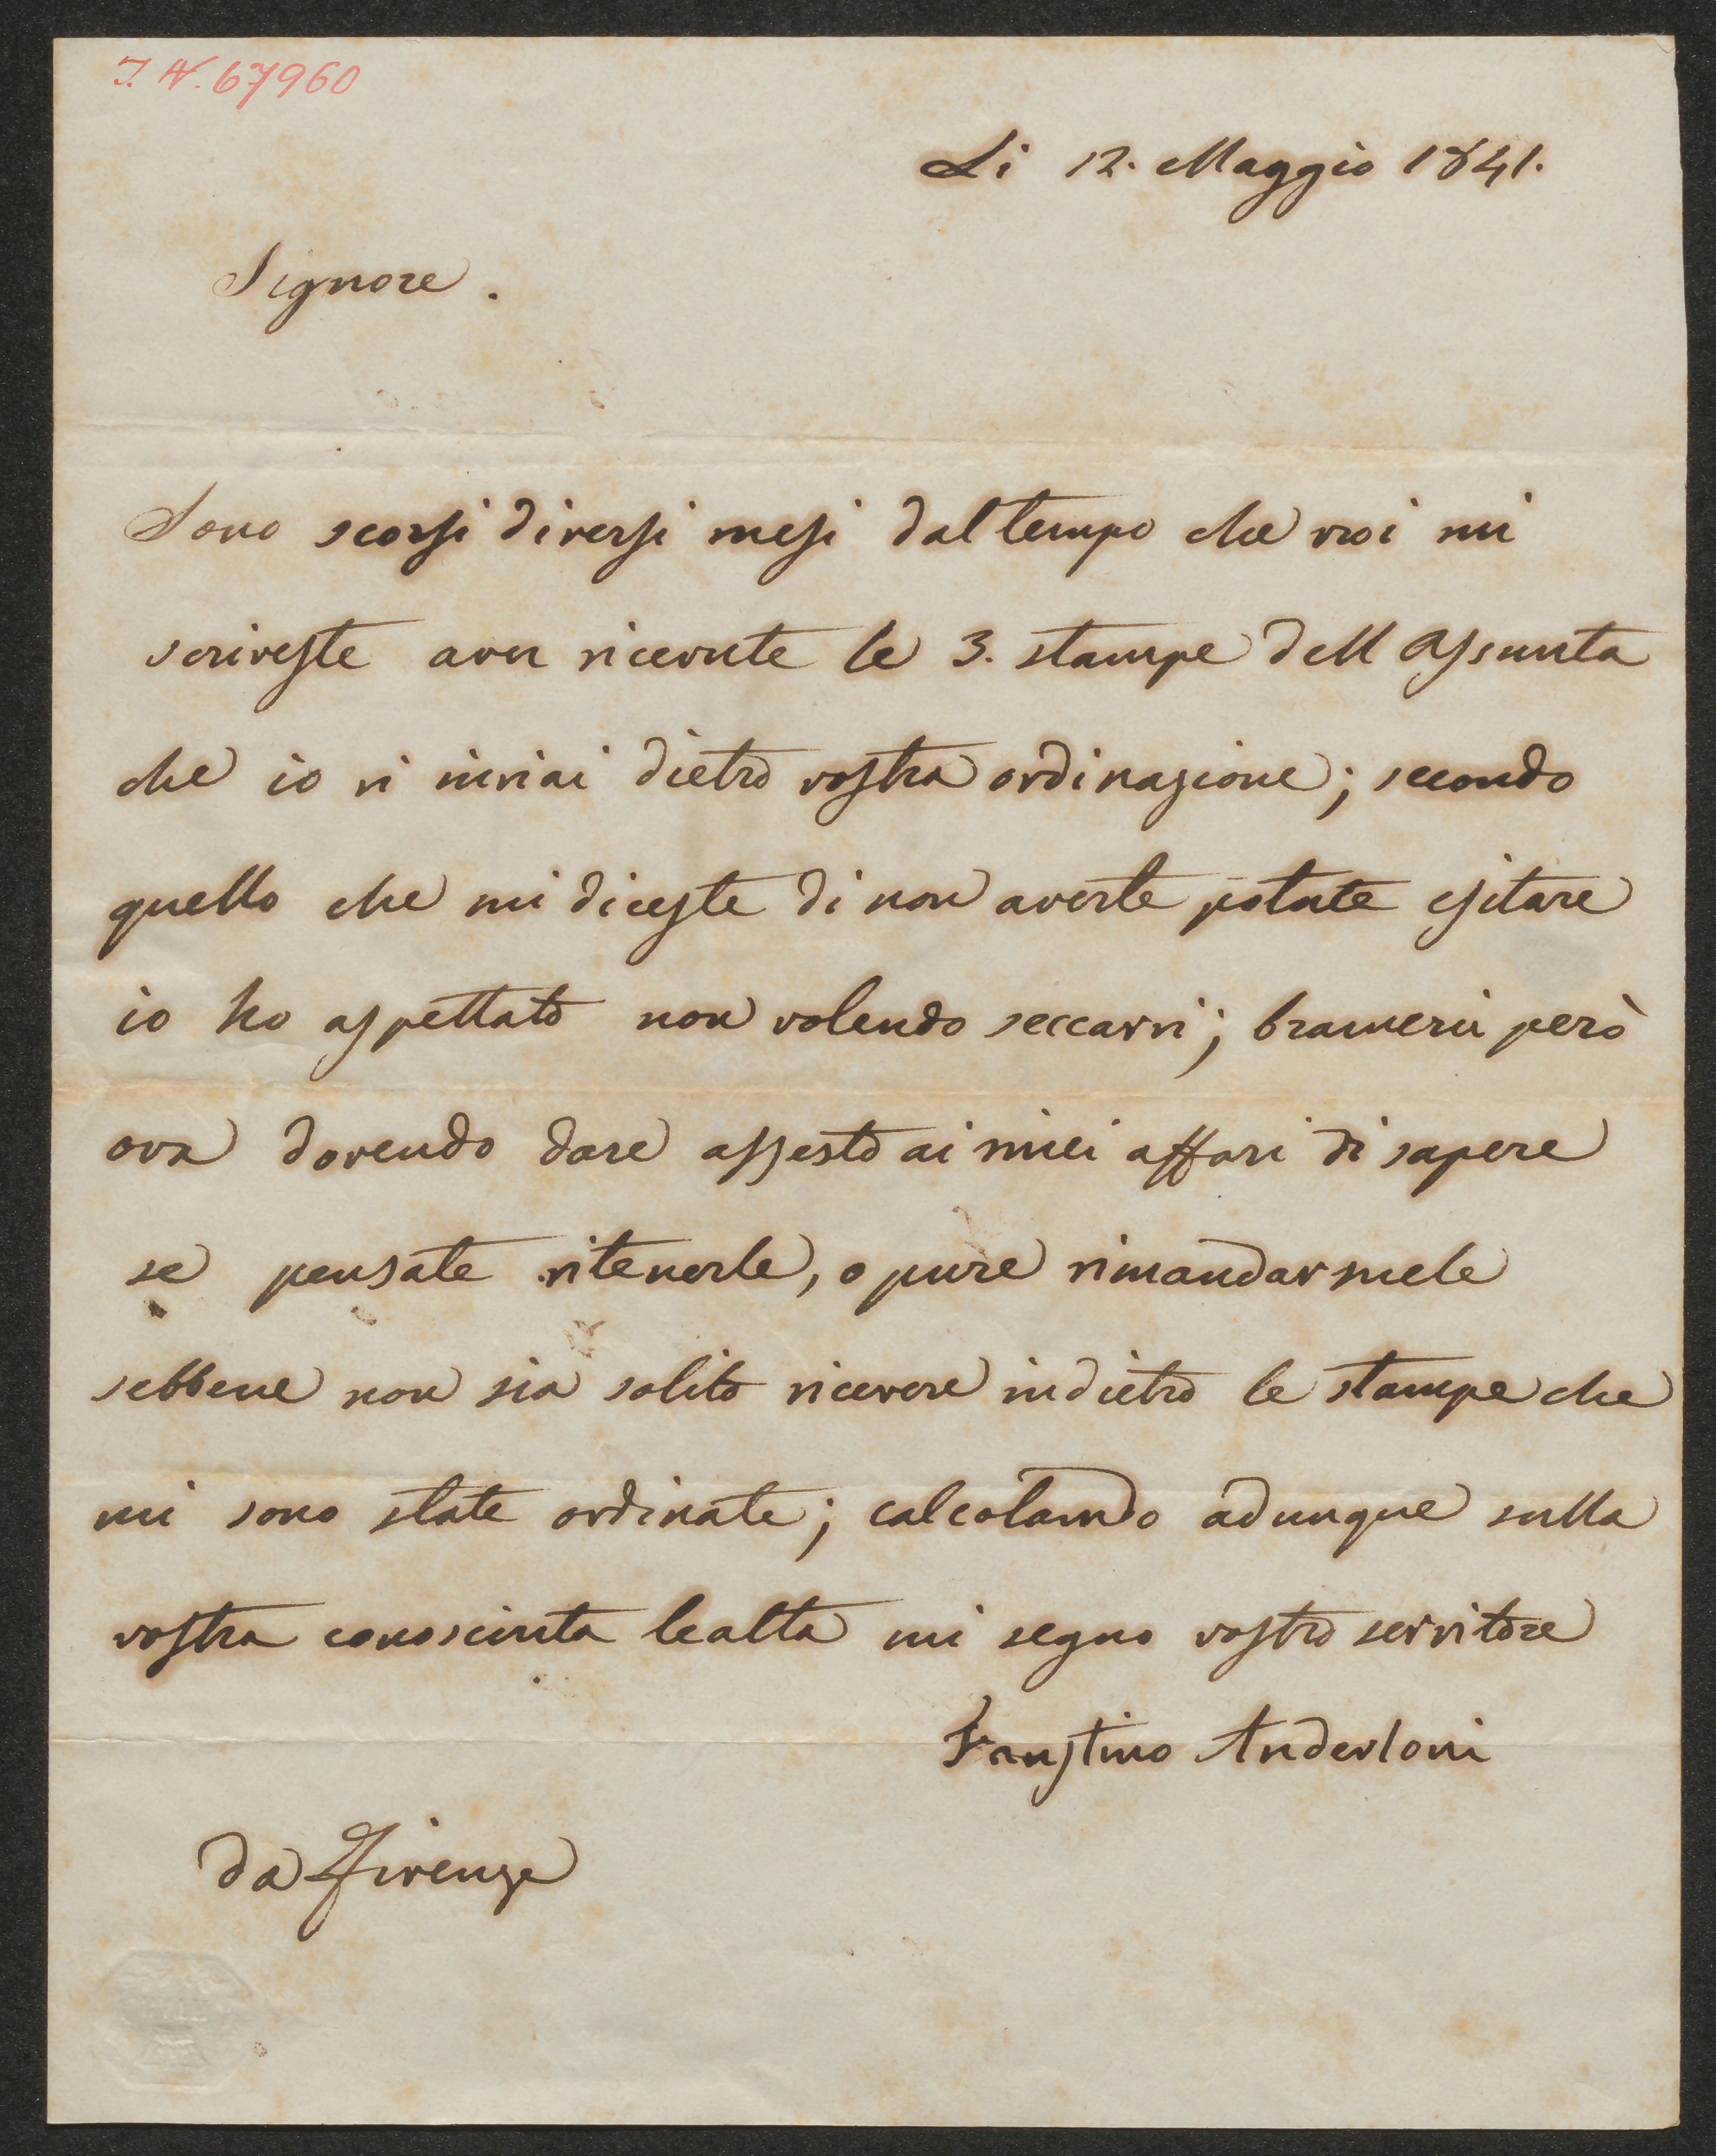 I. N. 67960
Li 12. Maggio 1841.
Signore.
Sono scorsi diversi mesi dal tempo che voi mi
scriveste aver ricevute le 3. stampe dell Assunta
che io vi inviai dietro vostra ordinazione; secondo
quello che mi diceste di non averle potute esitare
io ho aspettato non volendo seccarvi; bramerei però
ora dovendo dare assesto ai miei affari di sapere
se pensate ritenerle, o pure rimandarmele
sebbene non sia solito ricevere indietro le stampe che
mi sono state ordinate; calcolando adunque sulla
vostra conosciuta lealta mi segno vostro servitore
Faustino Anderloni
da Firenze